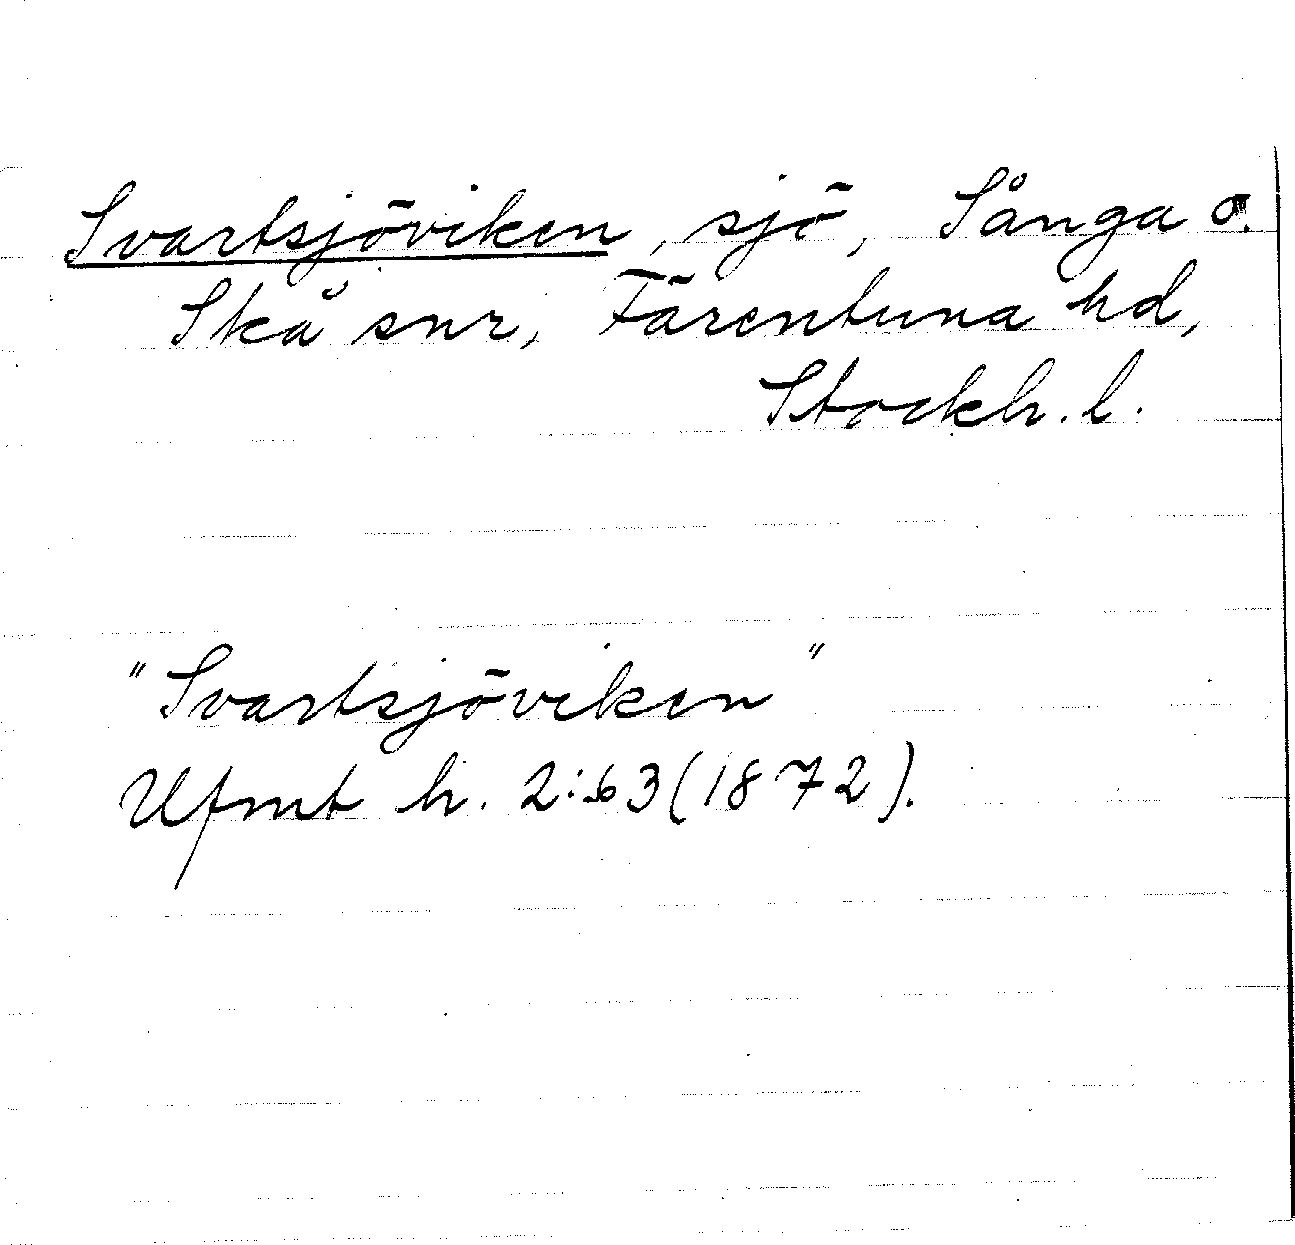 Svartsjöviken, sjö, Sånga o.
Skå snr, Färentuna hd,
Stockh. l.
"Svartsjöviken"
Ufmt h. 2:63 (1872).